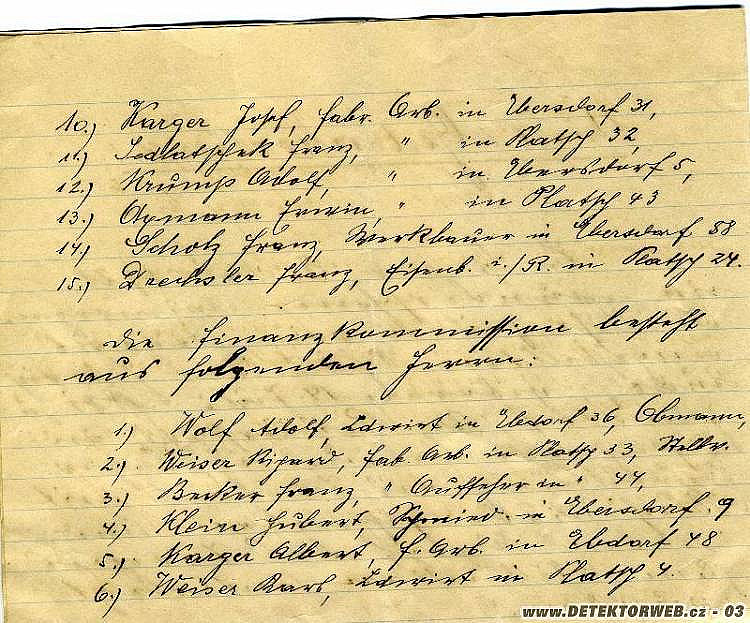 10.) Karger Josef, fabr. Arb. in Ebersdorf 31,
11.) Sedlatschek Franz, " in Platsch 32,
12.) Krump Adolf, " in Ebersdorf 5,
13.) Axmann Erwin, " in Platsch 43
14.) Scholz Franz, Werkbauer in Ebersdorf 58
15.) Drechsler Franz, Eisenb. i./R. in Platsch 24.
Die Finanzkommission besteht
aus folgenden Herrn:
1.) Wolf Adolf, Ldwirt in Ebdorf 36, Obmann,
2.) Weiser Richard, fab. Arb. in Platsch 53, Stellv.
3.) Becker Franz, " Aufseher in " 44,
4.) Klein Hubert, Schmied in Ebersdorf 9
5.) Karger Albert, f. Arb. in Ebdorf 48
6.) Weiser Karl, Ldwirt in Platsch 4.
www.DETEKTORWEB.cz - 03